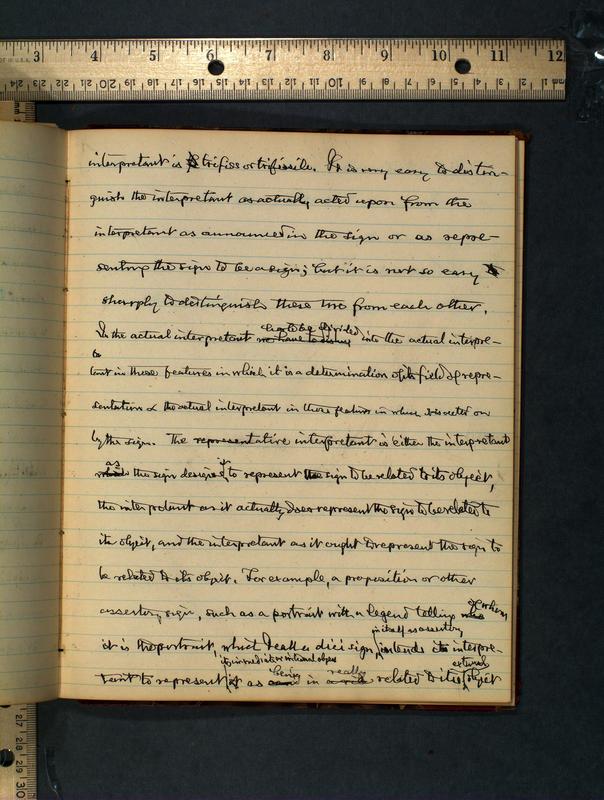 interpretant is trifiss or trifissile. It is very easy to distin-
guish the interpretant as actually acted upon from the
interpretant as announced in the sign or as repre-
senting the sign to be a sign; but it is not so easy
sharply to distinguish these two from each other.
has to be divided
In the actual interpretant we have to into the actual interpre-
tant in those features in which it is a determination of its field of repre-
sentation & the actual interpretant in those features in which it is acted on
by the sign. The representative interpretant is either the interpretant
as it
the sign designed to represent the sign to be related to its object,
the interpretant as it actually does represent the sign to be related to
its object, and the interpretant as it ought to represent the sign to
be related to its object. For example, a proposition or other
of whom
assertory sign, such as a portrait with a legend telling who
in itself as assertory
it is the portrait, which I call a dicisign, intends its interpre-
its immediate or internal object external
being really
tant to represent as in related to its object